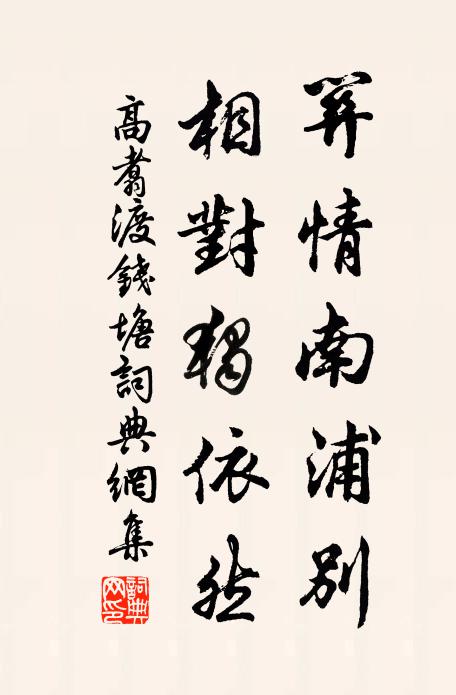 情南浦別
相對獨依然
高翥渡錢塘詞典網集
詞典
网印